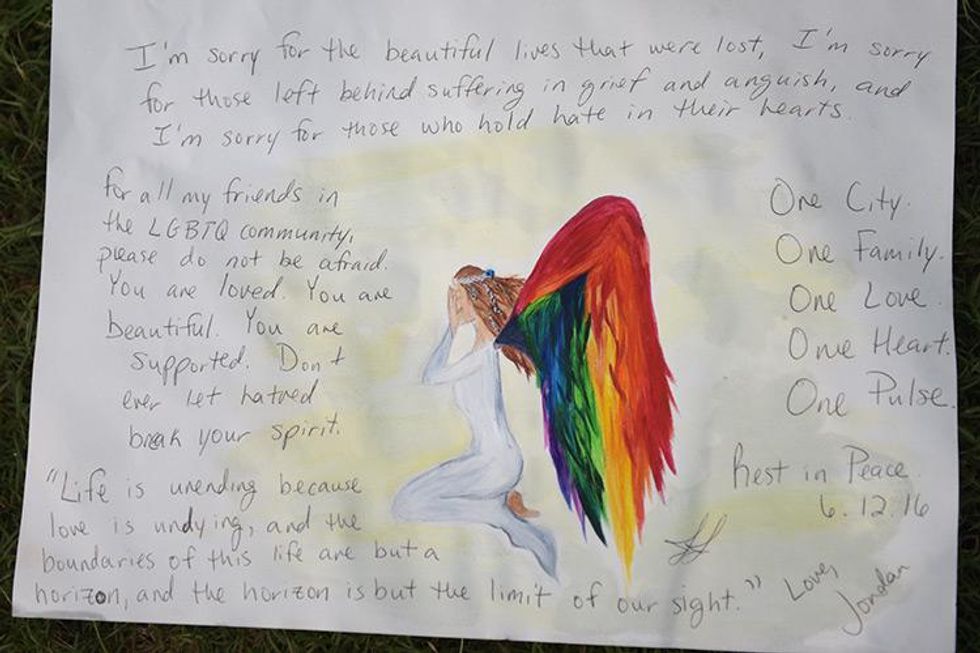 I'm sorry for the beautiful lives that were lost, I'm sorry
for those left behind suffering in grief and anguish, and
I'm sorry for those who hold hate in their hearts.
for all my friends in
the LGBTQ community,
please do not be afraid.
You are loved. You are
beautiful. You are
supported. Don't
ever let hatred
break your spirit.
One City.
One Family.
One Love.
One Heart.
One Pulse.
Rest in Peace.
6.12.16
"Life is unending because
love is undying, and the
boundaries of this life are but a
horizon, and the horizon is but the limit of our sight."
Love,
Jordan